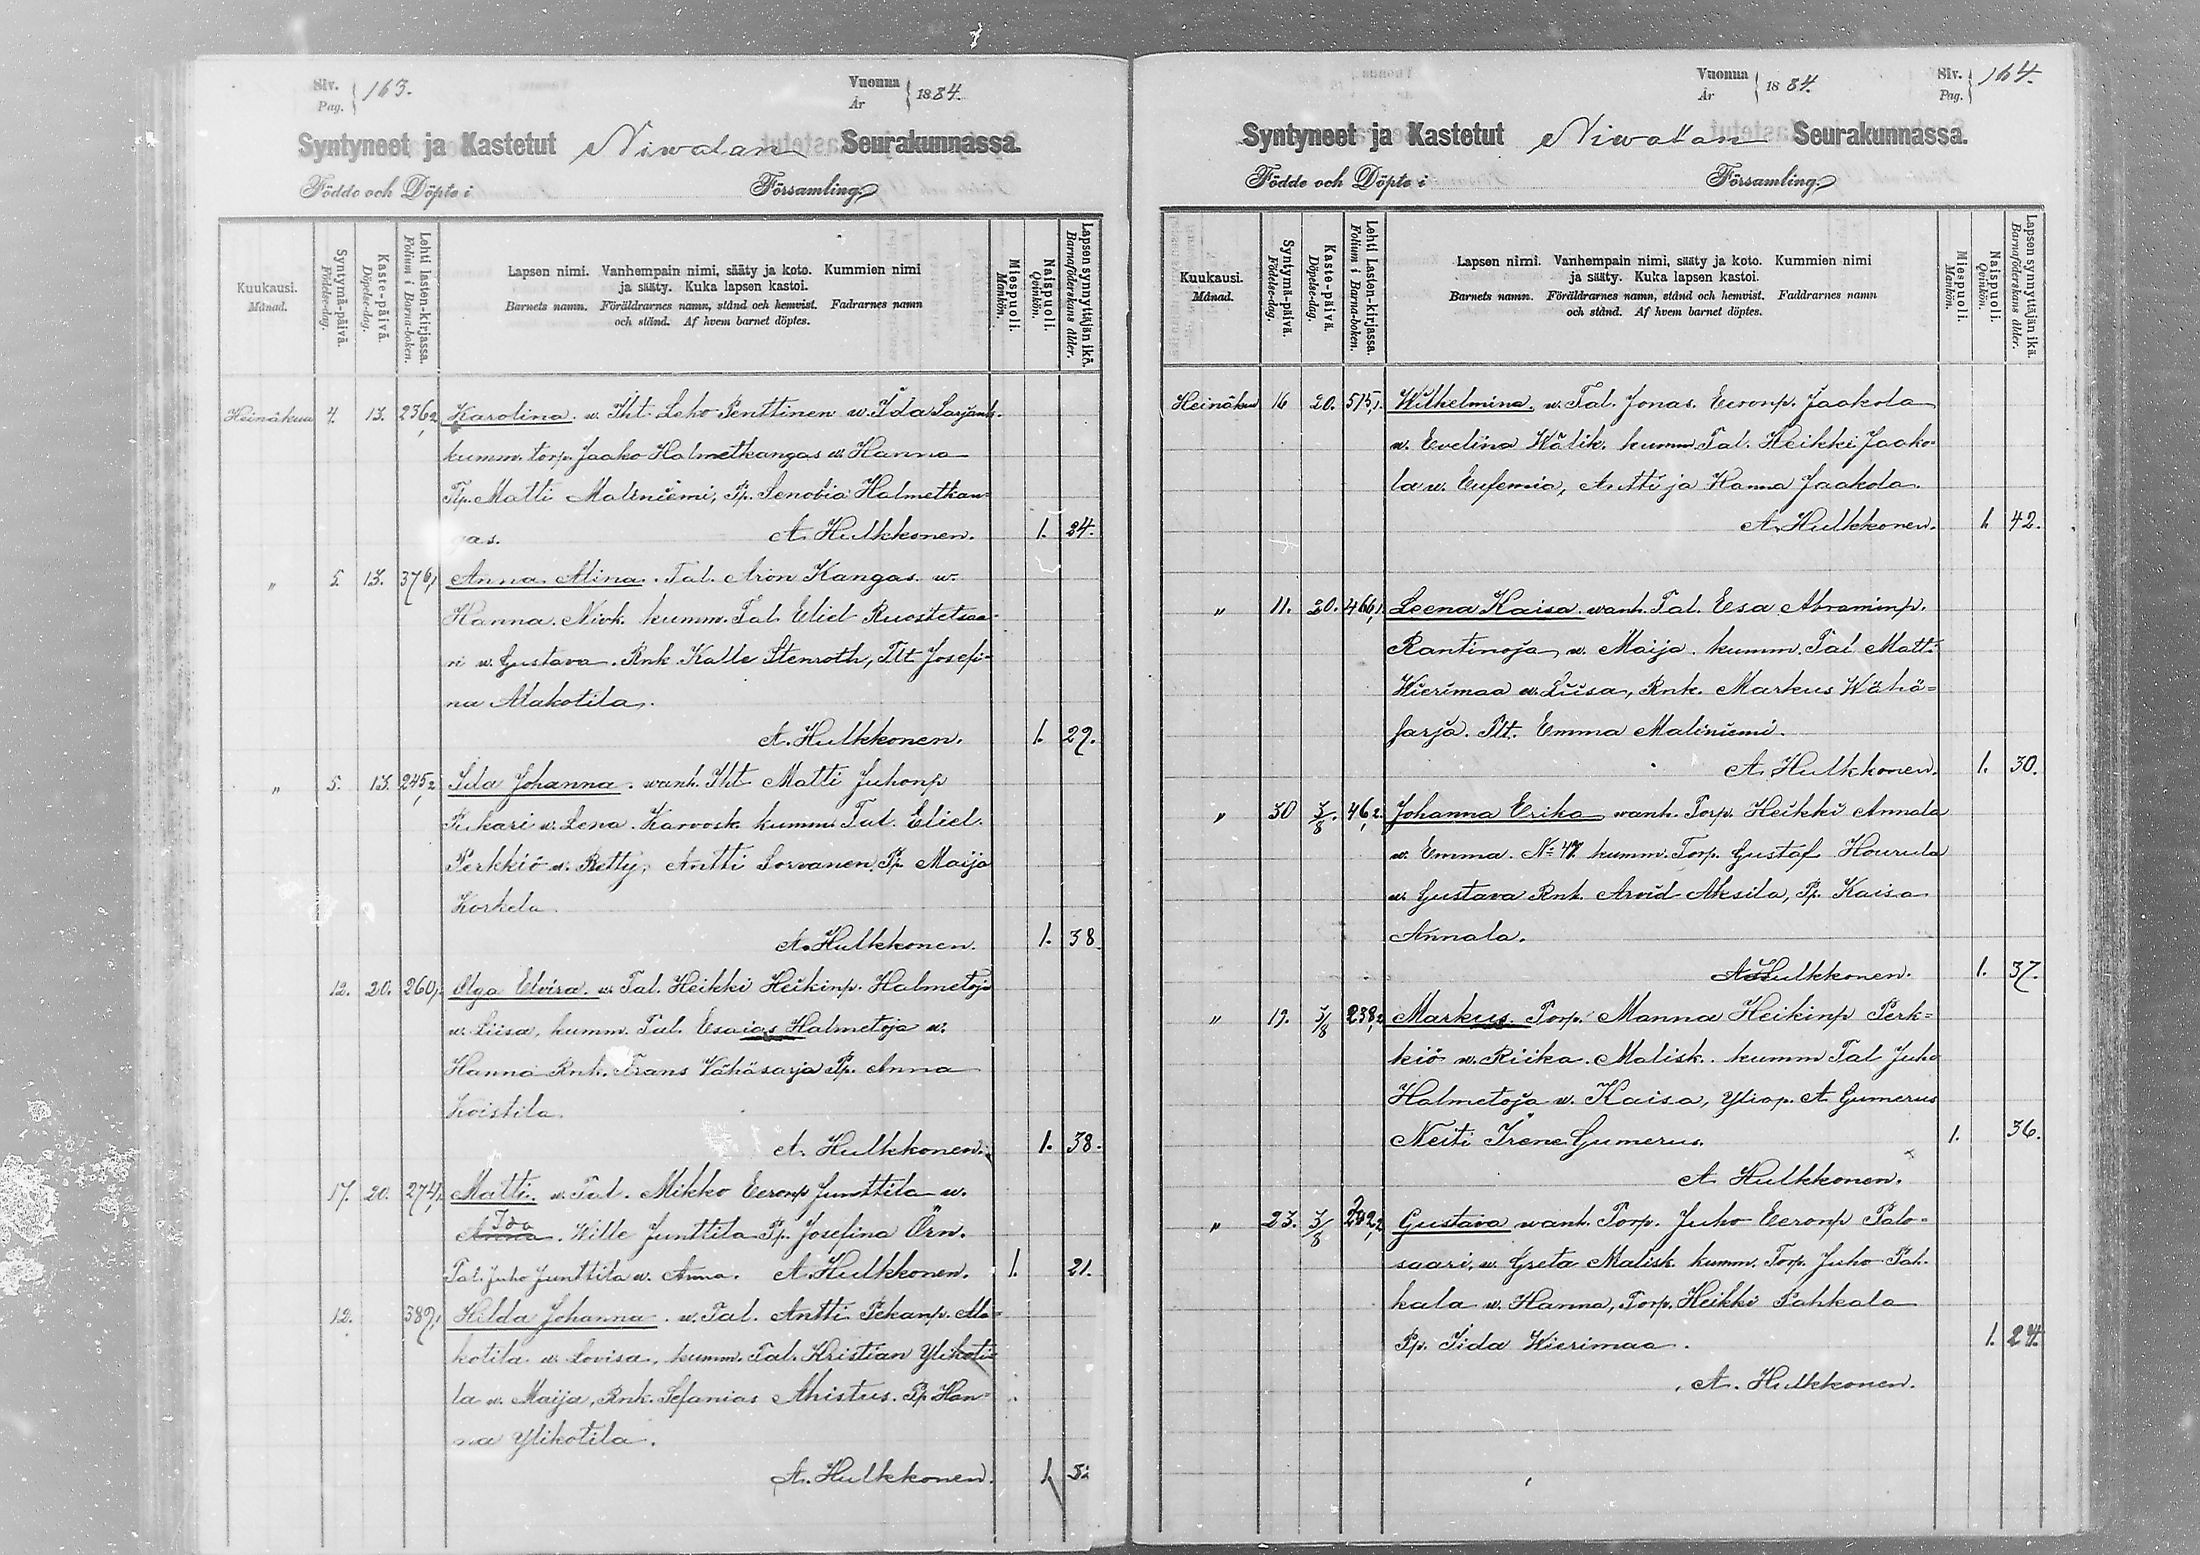 Siv. Pag. 163.
Vuonna År 1884.
Syntyneet ja Kastetut Niwalan Seurakunnassa.
Födde och Döpte i Församling
Kuukausi. Månad.
Syntymä-päivä. Födelse-dag.
Kaste-päivä. Döpelse-dag.
Lehti lasten-kirjassa. Folium i Barna-boken.
Lapsen nimi. Vanhempain nimi, sääty ja koto. Kummien nimi
ja sääty. Kuka lapsen kastoi.
Barnets namn. Föräldrarnes namn, stånd och hemvist. Fadrarnes namn
och stånd. Af hvem barnet döptes.
Miespuoli. Mankön.
Naispuoli. Qvinkön.
Lapsen synnyttäjän ikä. Barnaföderskans ålder.
Heinäkuu 4. 13. 236,2 Karolina. w. Iht. Leho Penttinen w. Ida Sarjank.
kumm. torp. Jaako Halmetkangas w. Hanna
Pp. Matti Maliniemi, Pp. Senobia Halmetkan=
gas. A. Hulkkonen. 1. 24.
" 5. 13. 376,1 Anna Alina. Tal. Aron Kangas w.
Hanna. Nivk. kumm. Tal. Eliel Ruostetsaa=
ri w. Gustava. Rnk. Kalle Stenroth, Tlt Josefi=
na Alakotila.
A. Hulkkonen. 1. 29.
" 5. 13. 245,2 Ida Johanna. wanh. Iht Matti Juhonp
Pukari w. Lena. Karvosk. kumm. Tal. Eliel
Perkkiö w. Betty, Antti Sorvanen, Pp. Maija
Korkela
A. Hulkkonen. 1. 38
12. 20. 260,1. Olga Elvira. w. Tal. Heikki Heikinp. Halmetoja
w. Liisa, kumm. Tal. Esaias Halmetoja w.
Hanna Rnk. Frans Vähäsarja Pp. Anna
Koistila.
A. Hulkkonen. 1. 38.
17. 20. 274,1. Matti. w. Tal. Mikko Eeronp Junttila w.
Ida
Anna. Wille Junttila Pp. Josefina Örn.
Tal. Juho Junttila w. Anna. A. Hulkkonen. 1. 21.
12. 389,1 Hilda Johanna. w. Tal. Antti Pekanp. Ala=
kotila w. Lovisa, kumm. Tal. Kristian Ylikoti=
la w. Maija, Rnk. Sefanias Ahistus. Pp Han=
na Ylikotila.
A. Hulkkonen. 1.
Vuonna År 1884.
Siv. Pag. 164.
Syntyneet ja Kastetut Niwalan Seurakunnassa.
Födde och Döpte i Församling
Kuukausi. Månad.
Syntymä-päivä. Födelse-dag.
Kaste-päivä. Döpelse-dag.
Lehti Lasten-kirjassa. Folium i Barna-boken.
Lapsen nimi. Vanhempain nimi, sääty ja koto. Kummien nimi
ja sääty. Kuka lapsen kastoi.
Barnets namn. Föräldrarnes namn, stånd och hemvist. Faddrarnes namn
och stånd. Af hvem barnet döptes.
Miespuoli. Mankön.
Naispuoli. Qvinkön.
Lapsen synnyttäjän ikä. Barnaföderskans ålder.
Heinäkuu 16 20. 575,1. Wilhelmina. w. Tal. Jonas. Eeronp. Jaakola
w. Evelina Wälik. kumm. Tal. Heikki Jaako=
la w. Eufemia, Antti ja Hanna Jaakola.
A. Hulkkonen. 1. 42.
" 11. 20. 466,1. Leena Kaisa. wanh. Tal. Esa Abraminp.
Rantinoja w. Maija. kumm. Tal Matti
Wierimaa w. Liisa, Rnk. Markus Wähä=
sarja. Plt. Emma Maliniemi.
A. Hulkkonen. 1. 30.
" 30 3/8. 46,2. Johanna Erika wanh. Torp. Heikki Annala
w. Emma. No 47 kumm. Torp. Gustaf Hourula
w. Gustava Rnk. Arvid Aksila, Pp. Kaisa
Annala.
A. Hulkkonen. 1. 37.
" 19. 3/8 238,2 Markus. Torp. Manna Heikinp Perk=
kiö w. Riika. Malisk. kumm Tal Juho
Halmetoja w. Kaisa, Yliop. A. Gumerus
Neiti Irene Gumerus. 1. 36.
A. Hulkkonen.
" 23. 3/8 202,2 Gustava wanh. Torp. Juho Eeronp Palo=
saari, w. Greta Malisk. kumm. Torp. Juho Pah=
kala w. Hanna, Torp. Heikki Pahkala
Pp. Iida Wierimaa. 1. 24.
A. Hulkkonen.